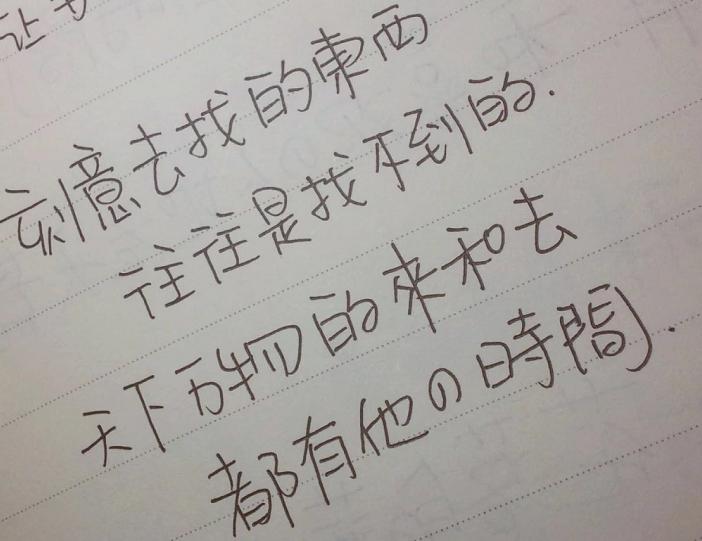 让
刻意去找的東西
往往是找不到的.
天下万物的来和去
都有他の時間.